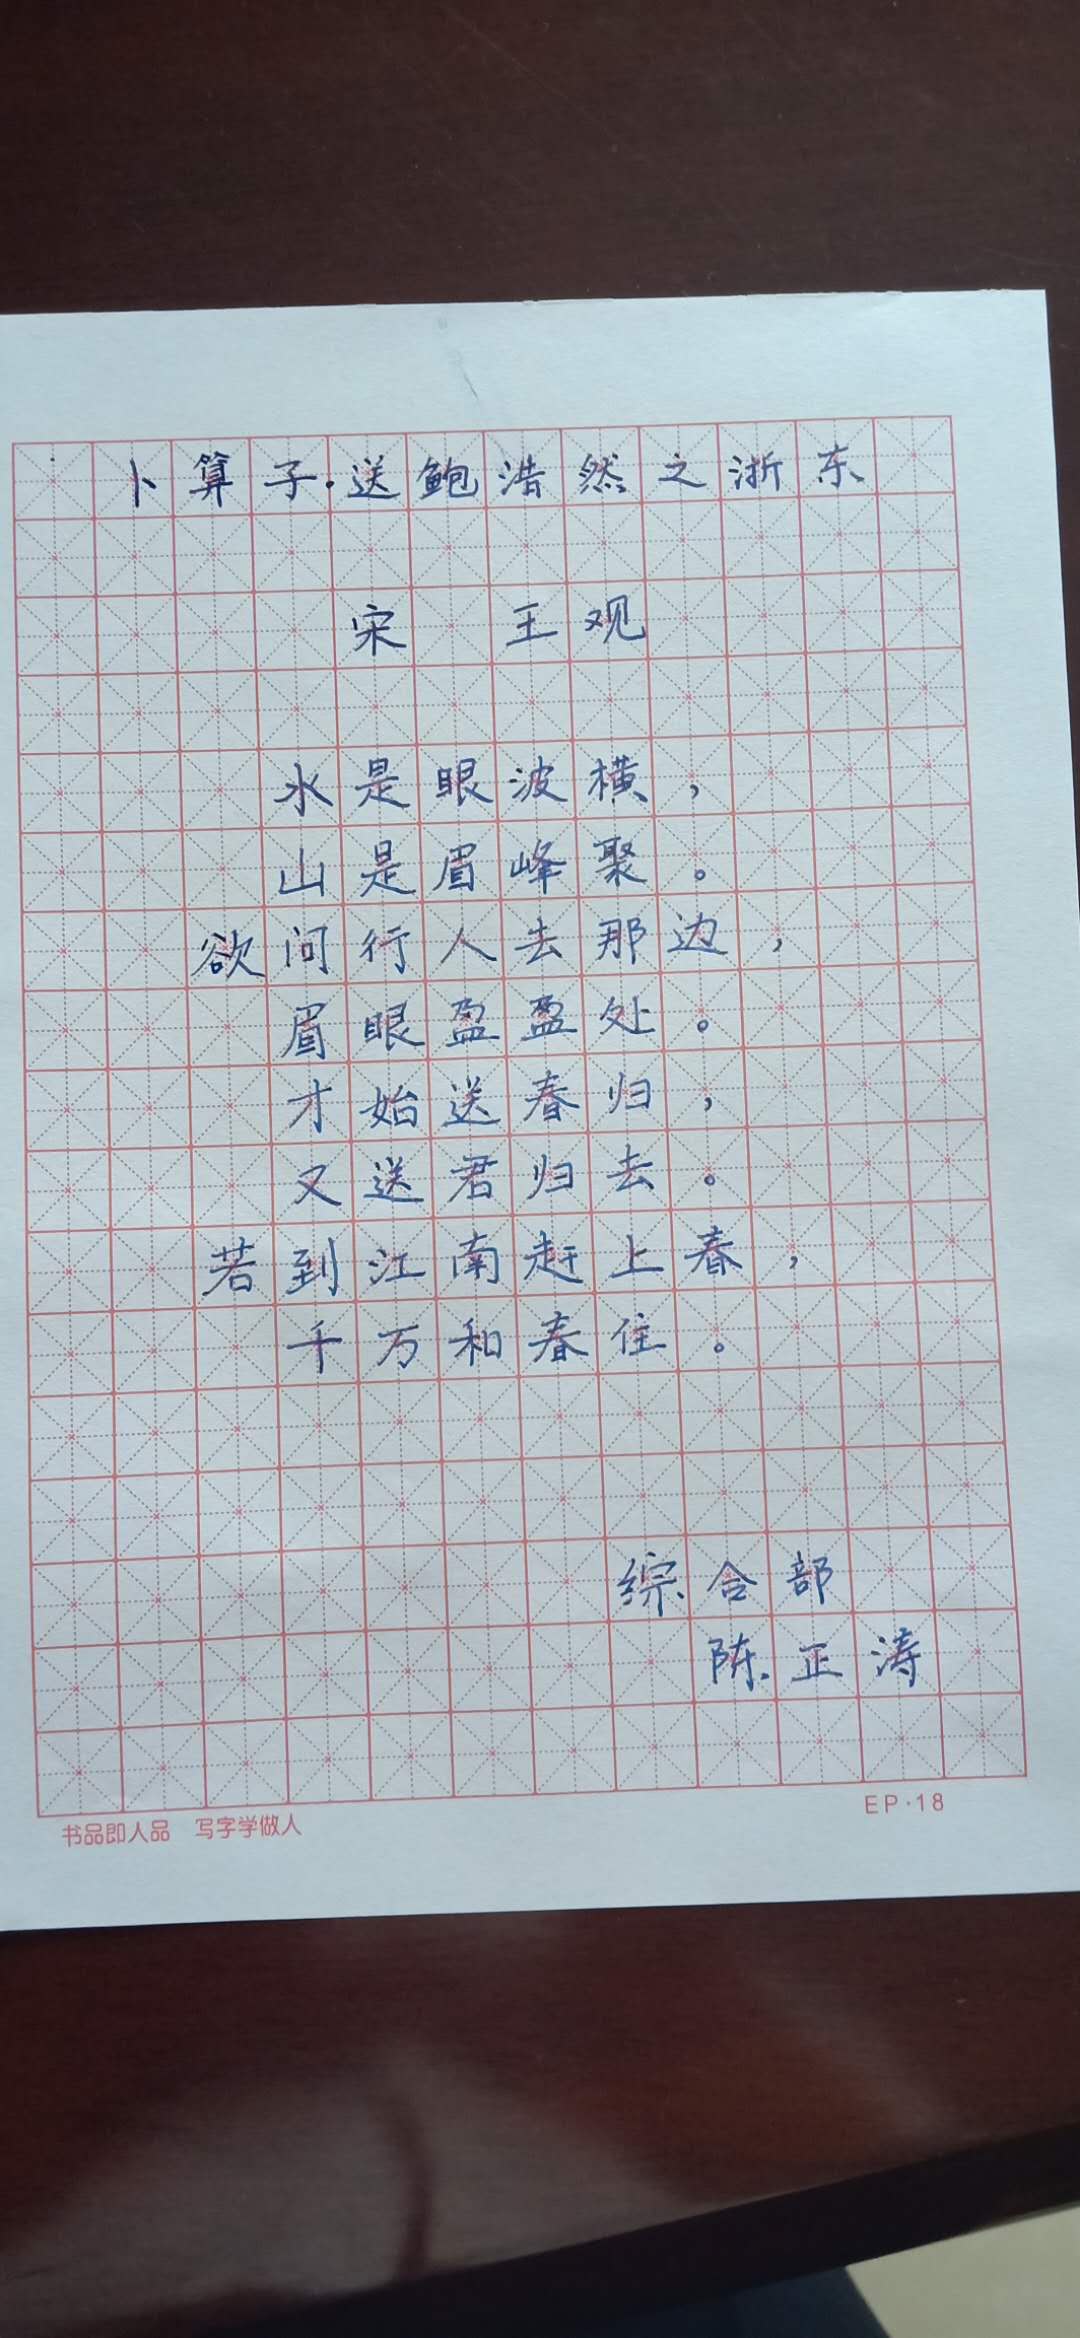 卜算子·送鲍浩然之浙东
宋 王观
水是眼波横，
山是眉峰聚。
欲问行人去那边，
眉眼盈盈处。
才始送春归，
又送君归去。
若到江南赶上春，
千万和春住。
综合部
陈正涛
书品即人品 写字学做人
EP·18